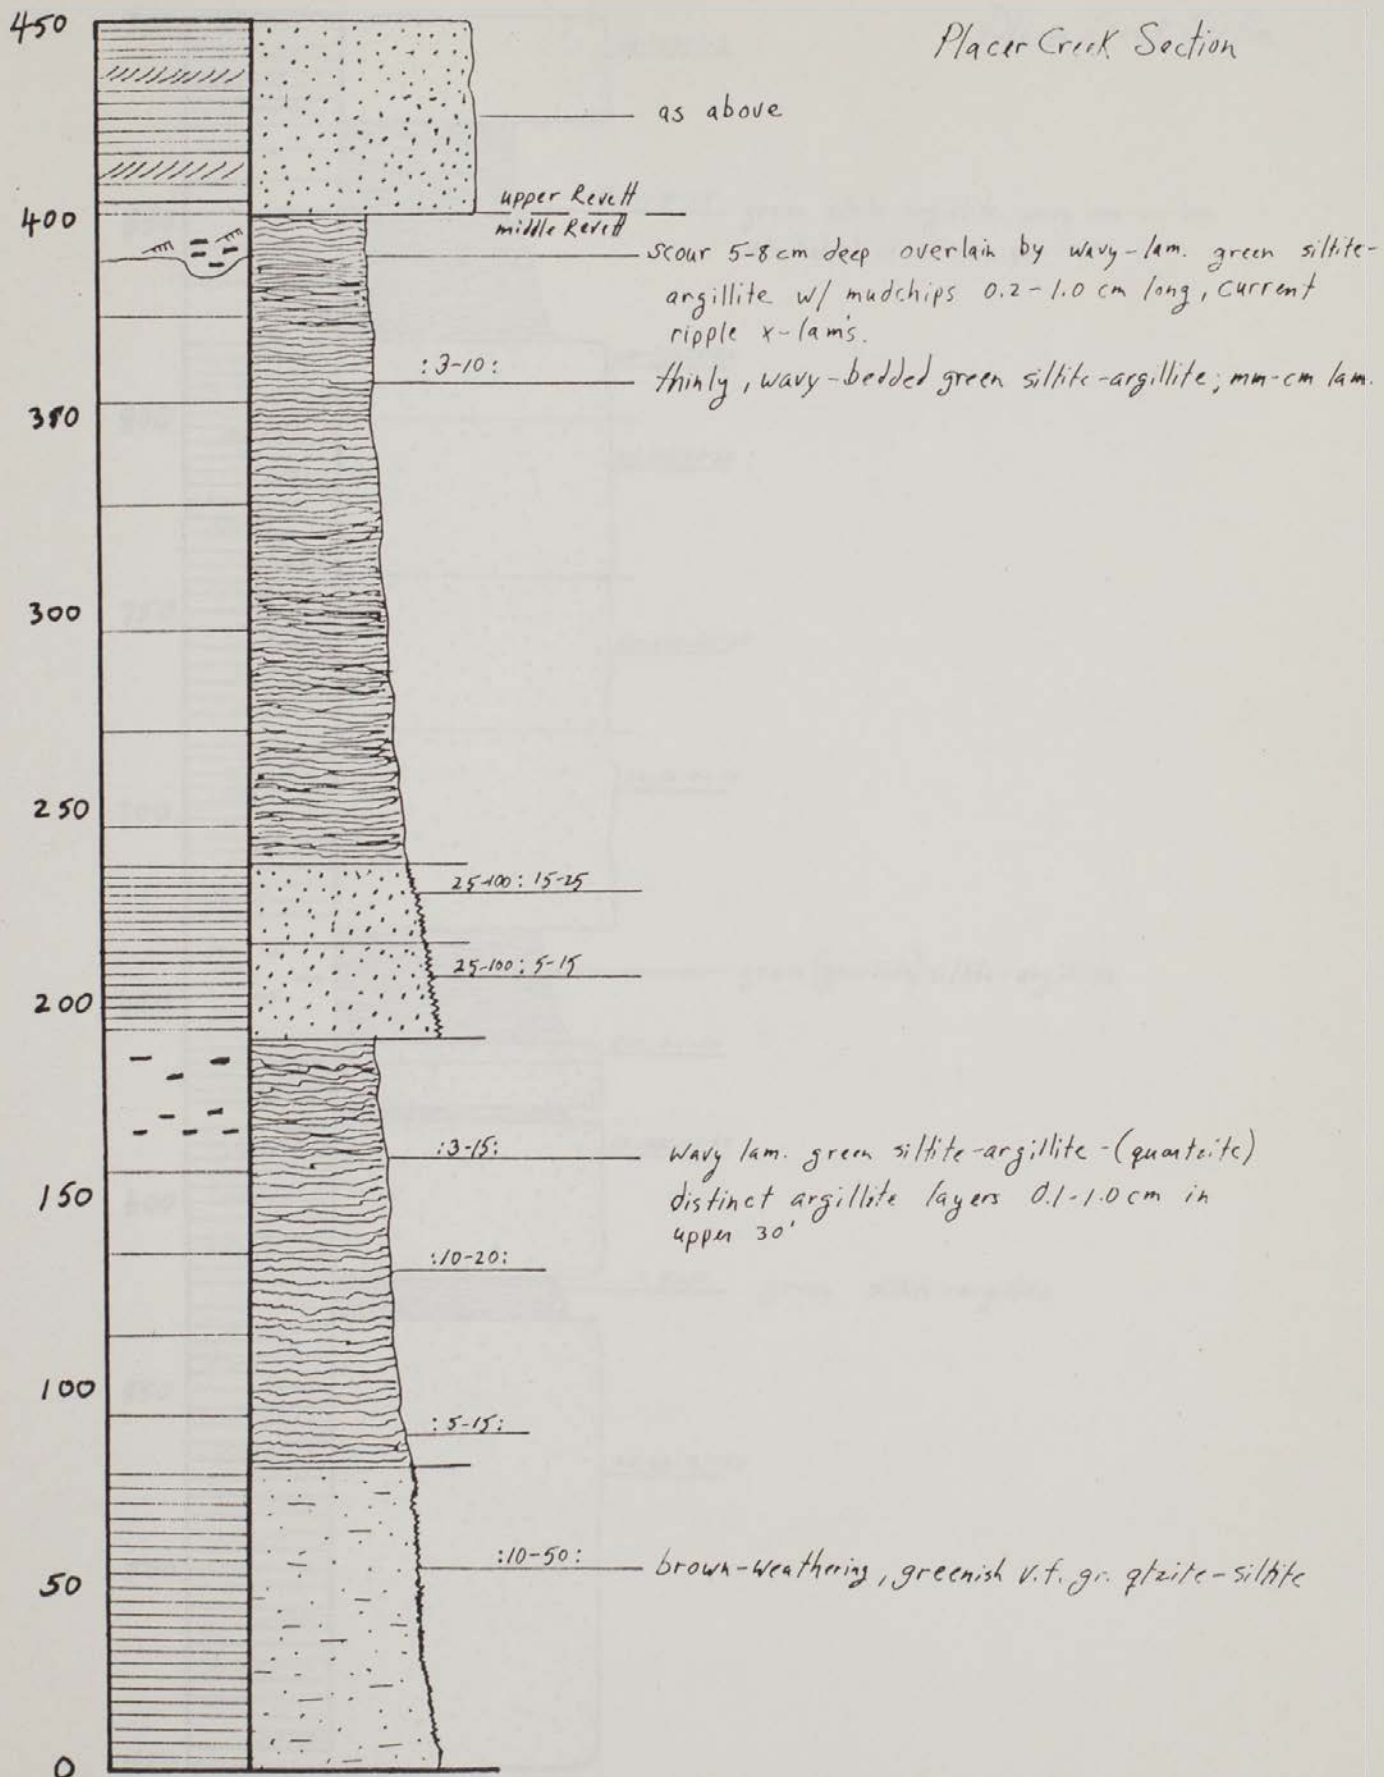 Placer Creek Section
450
as above
upper Revett
400
middle Revett
scour 5-8 cm deep overlain by wavy-lam. green siltite-
argillite w/ mudchips 0.2-1.0 cm long, current
ripple x-lam's.
:3-10:
thinly, wavy-bedded green siltite-argillite; mm-cm lam.
350
300
250
25-100: 15-25
25-100: 5-15
200
:3-15:
wavy lam. green siltite-argillite-(quartzite)
distinct argillite layers 0.1-1.0 cm in
upper 30'
150
:10-20:
100
:5-15:
:10-50:
brown-weathering, greenish v.f. gr. qtzite-siltite
50
0